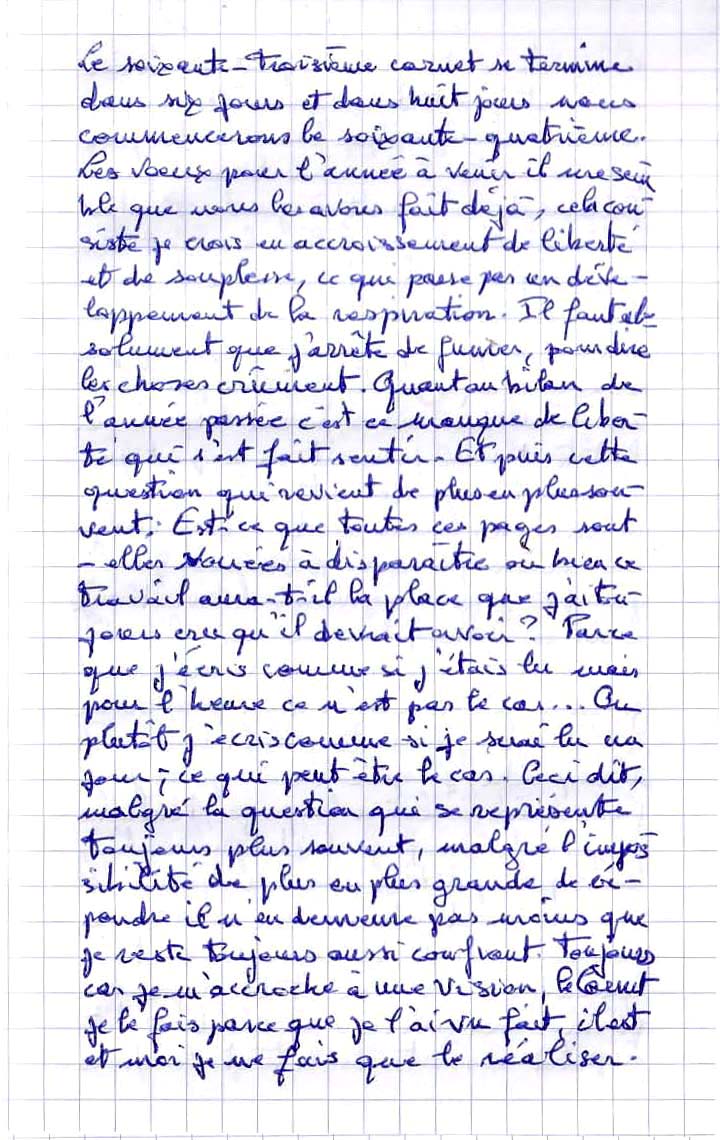 Le soixante-troisième carnet se termine
dans six jours et dans huit jours nous
commencerons le soixante-quatrième.
Les voeux pour l'année à venir il me sem
ble que nous les avons fait déjà, cela con
siste je crois en accroissement de liberté
et de souplesse, ce qui passe par un déve-
loppement de la respiration. Il faut ab-
solument que j'arrête de fumer, pour dire
les choses crûment. Quant au bilan de
l'année passée c'est ce manque de liber-
té qui s'est fait sentir. Et puis cette
question qui revient de plus en plus sou-
vent: Est-ce que toutes ces pages sont
-elles vouées à disparaître ou bien ce
travail aura-t-il la place que j'ai tou-
jours cru qu'il devrait avoir? Parce
que j'écris comme si j'étais lu mais
pour l'heure ce n'est pas le cas... Ou
plutôt j'écris comme si je serai lu un
jour, ce qui peut être le cas. Ceci dit,
malgré la question qui se représente
toujours plus souvent, malgré l'impos
sibilité de plus en plus grande de ré-
pondre il n'en demeure pas moins que
je reste toujours aussi confiant. Toujours
car je m'accroche à une vision, le Carnet
je le fais parce que je l'ai vu fait, il est
et moi je ne fais que le réaliser.